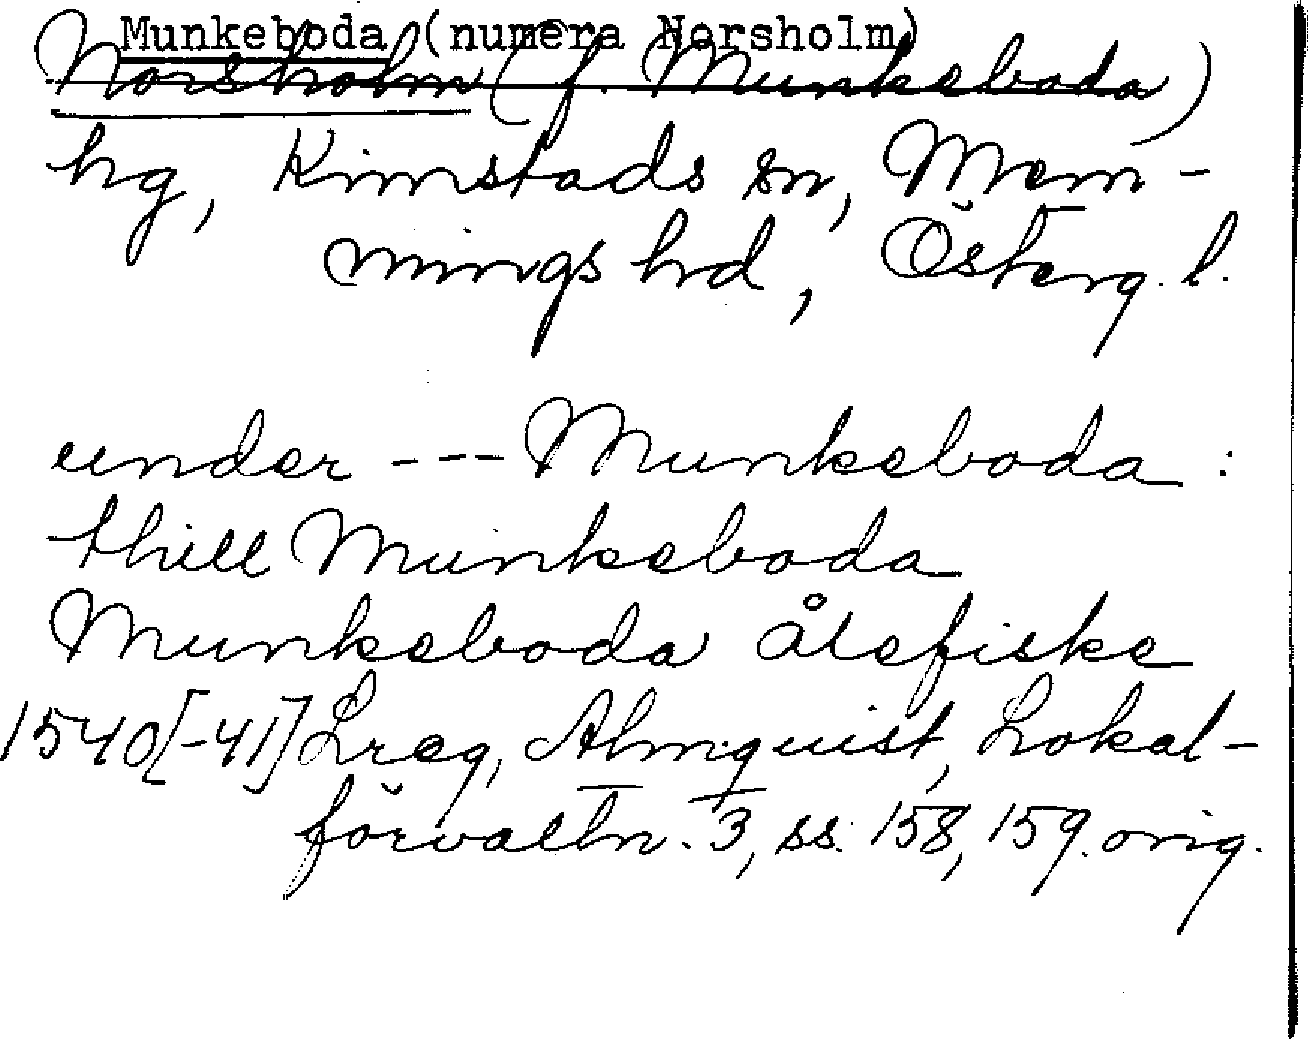 Munkeboda (numera Norsholm)
Norsholm (f. Munkeboda)
hg, Kimstads sn, Mem-
mings hrd, Österg. l.
under --- Munkeboda :
thill Munkeboda
Munkeboda ålefiske
1540[-41] Lreg, Almquist, Lokal-
förvaltn. 3, ss. 158, 159. orig.